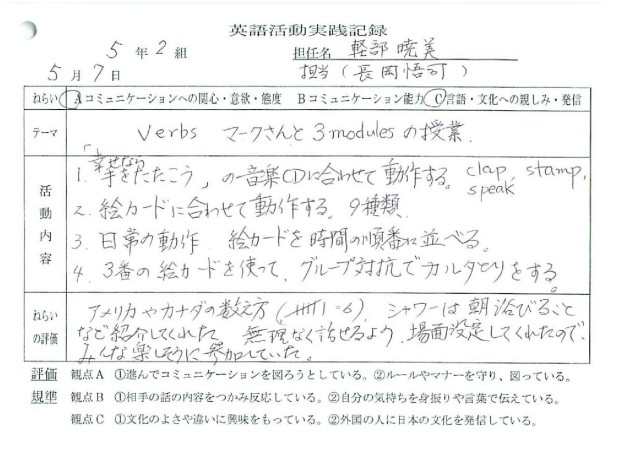 英語活動実践記録
5年2組 担任名 軽部 暁美
5月7日 担当(長岡悟可)
ねらい Aコミュニケーションへの関心・意欲・態度 Bコミュニケーション能力 C言語・文化への親しみ・発信
テーマ Verbs マークさんと3modulesの授業.
活動内容
1. 「幸せなら手をたたこう」の音楽CDに合わせて動作する。clap, stamp, speak
2. 絵カードに合わせて動作する。9種類.
3. 日常の動作 絵カードを時間の順番に並べる。
4. 3番の絵カードを使って、グループ対抗でカルタとりをする。
ねらいの評価
アメリカやカナダの数え方( =6)、シャワーは朝浴びること
など紹介してくれた 無理なく話せるよう、場面設定してくれたので、
みんな楽しそうに参加していた。
評価 観点A ①進んでコミュニケーションを図ろうとしている。②ルールやマナーを守り、図っている。
規準 観点B ①相手の話の内容をつかみ反応している。②自分の気持ちを身振りや言葉で伝えている。
観点C ①文化のよさや違いに興味をもっている。②外国の人に日本の文化を発信している。